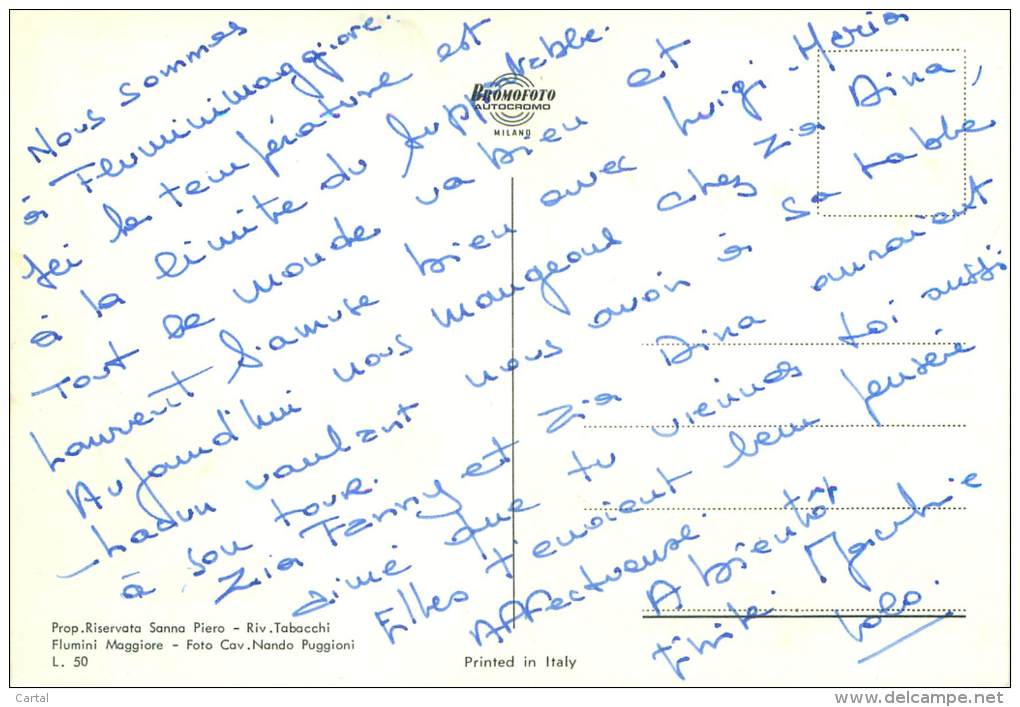 Nous sommes
à Fluminimaggiore.
Ici la température est
à la limite du supportable.
Tout le monde va bien et
Laurent s'amuse bien avec Luigi-Maria
Aujourd'hui nous mangeons chez zia Dina,
chacun voulant nous avoir à sa table
à son tour.
Zia Fanny et zia Dina auraient
aimé que tu viennes toi aussi
Elles t'envoient leur pensée
affectueuse.
A bientôt
BROMOFOTO
AUTOCROMO
MILANO
Prop.Riservata Sanna Piero - Riv.Tabacchi
Flumini Maggiore - Foto Cav.Nando Puggioni
L. 50
Printed in Italy
Cartal
www.delcampe.net